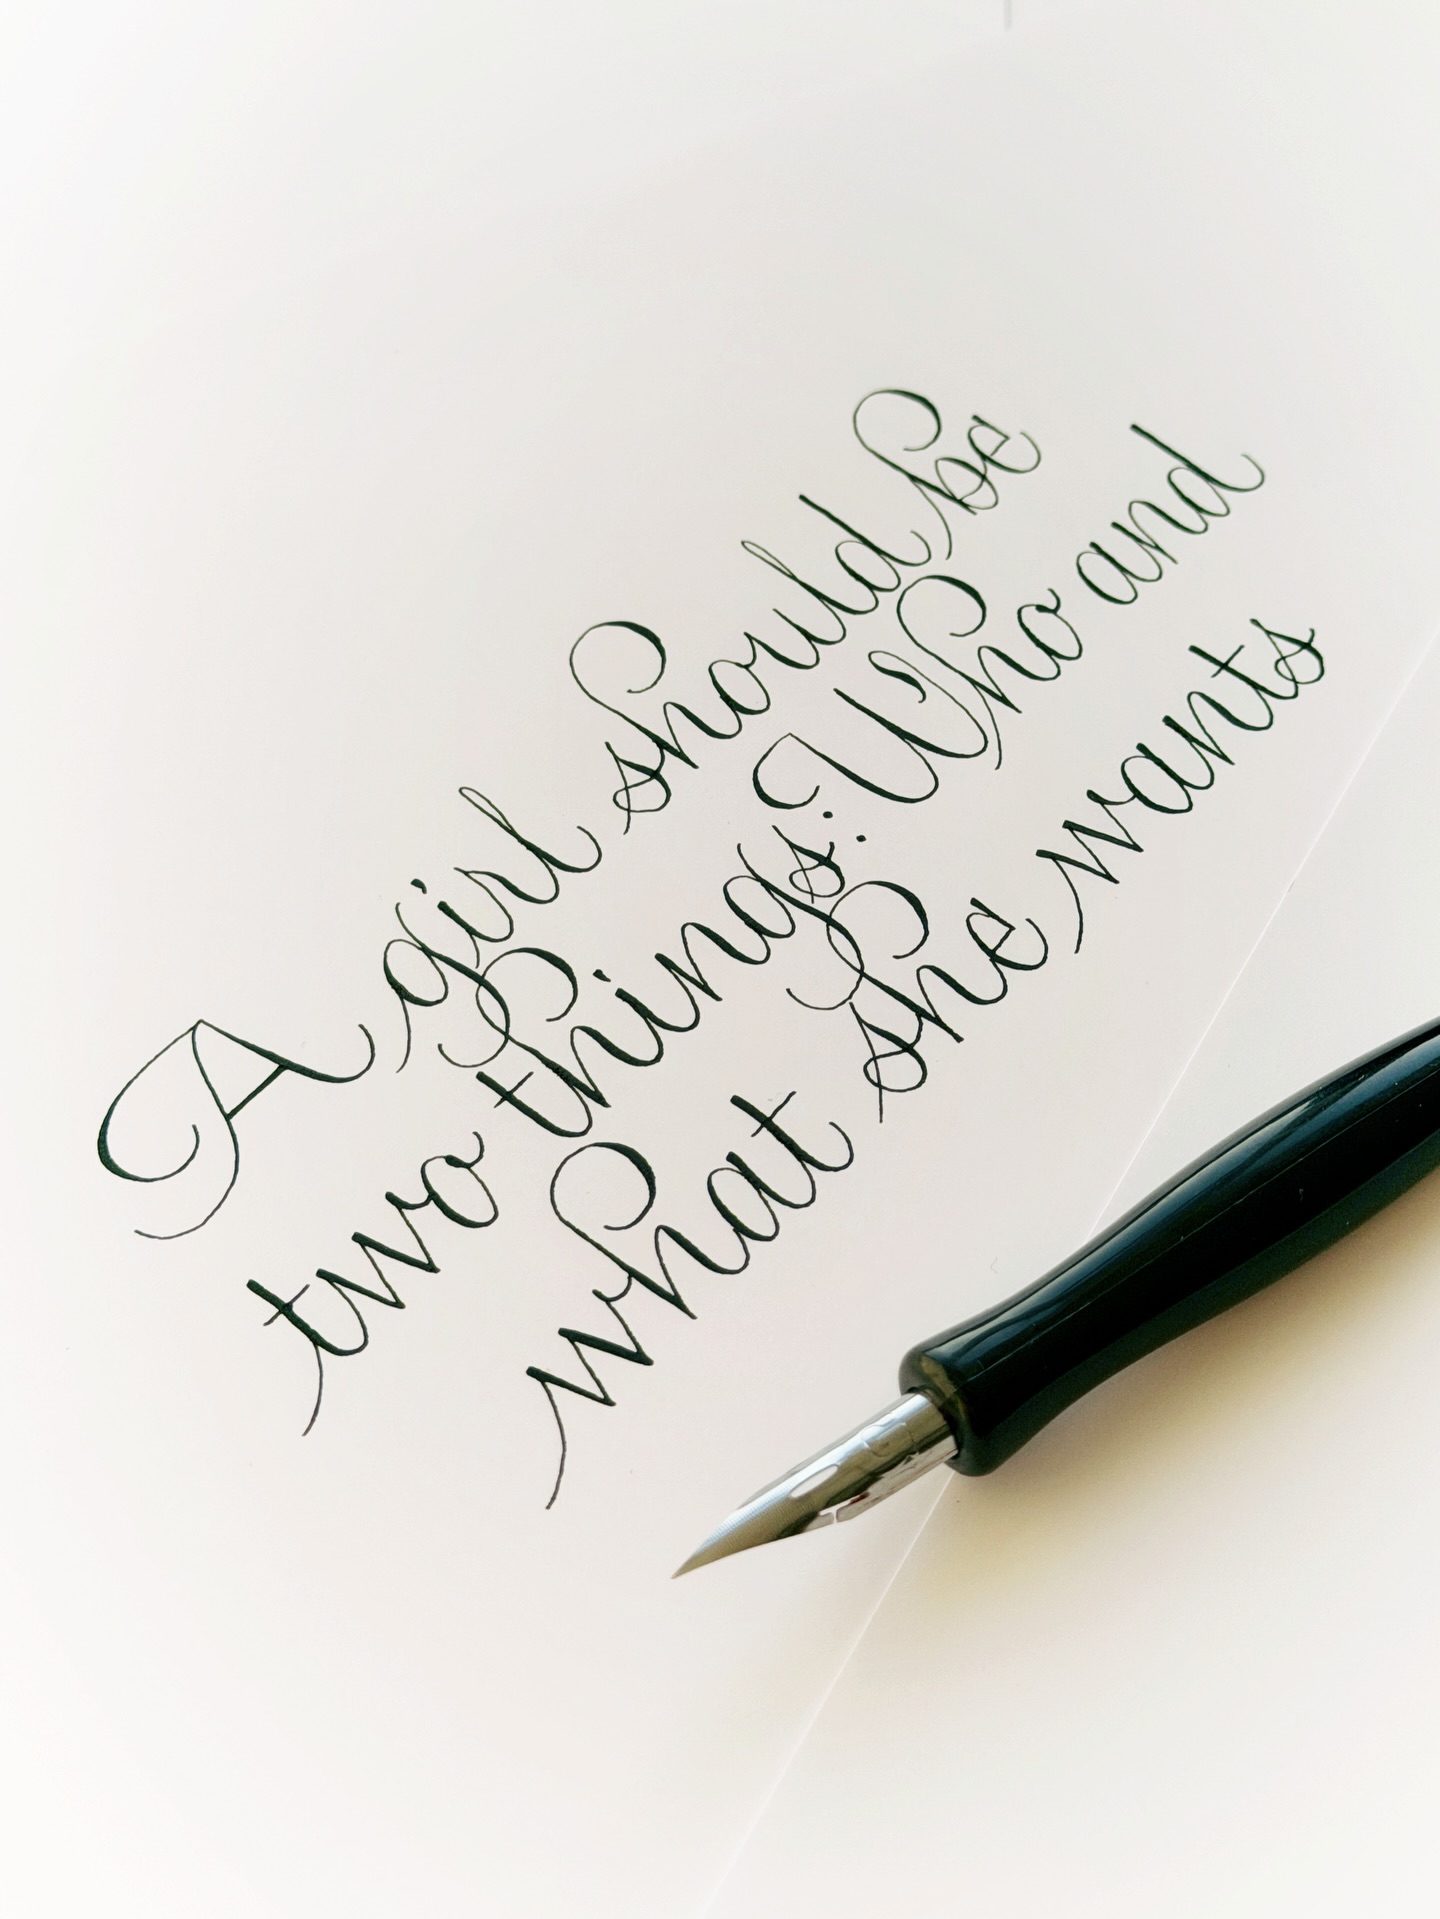 A girl should be
two things: Who and
what she wants